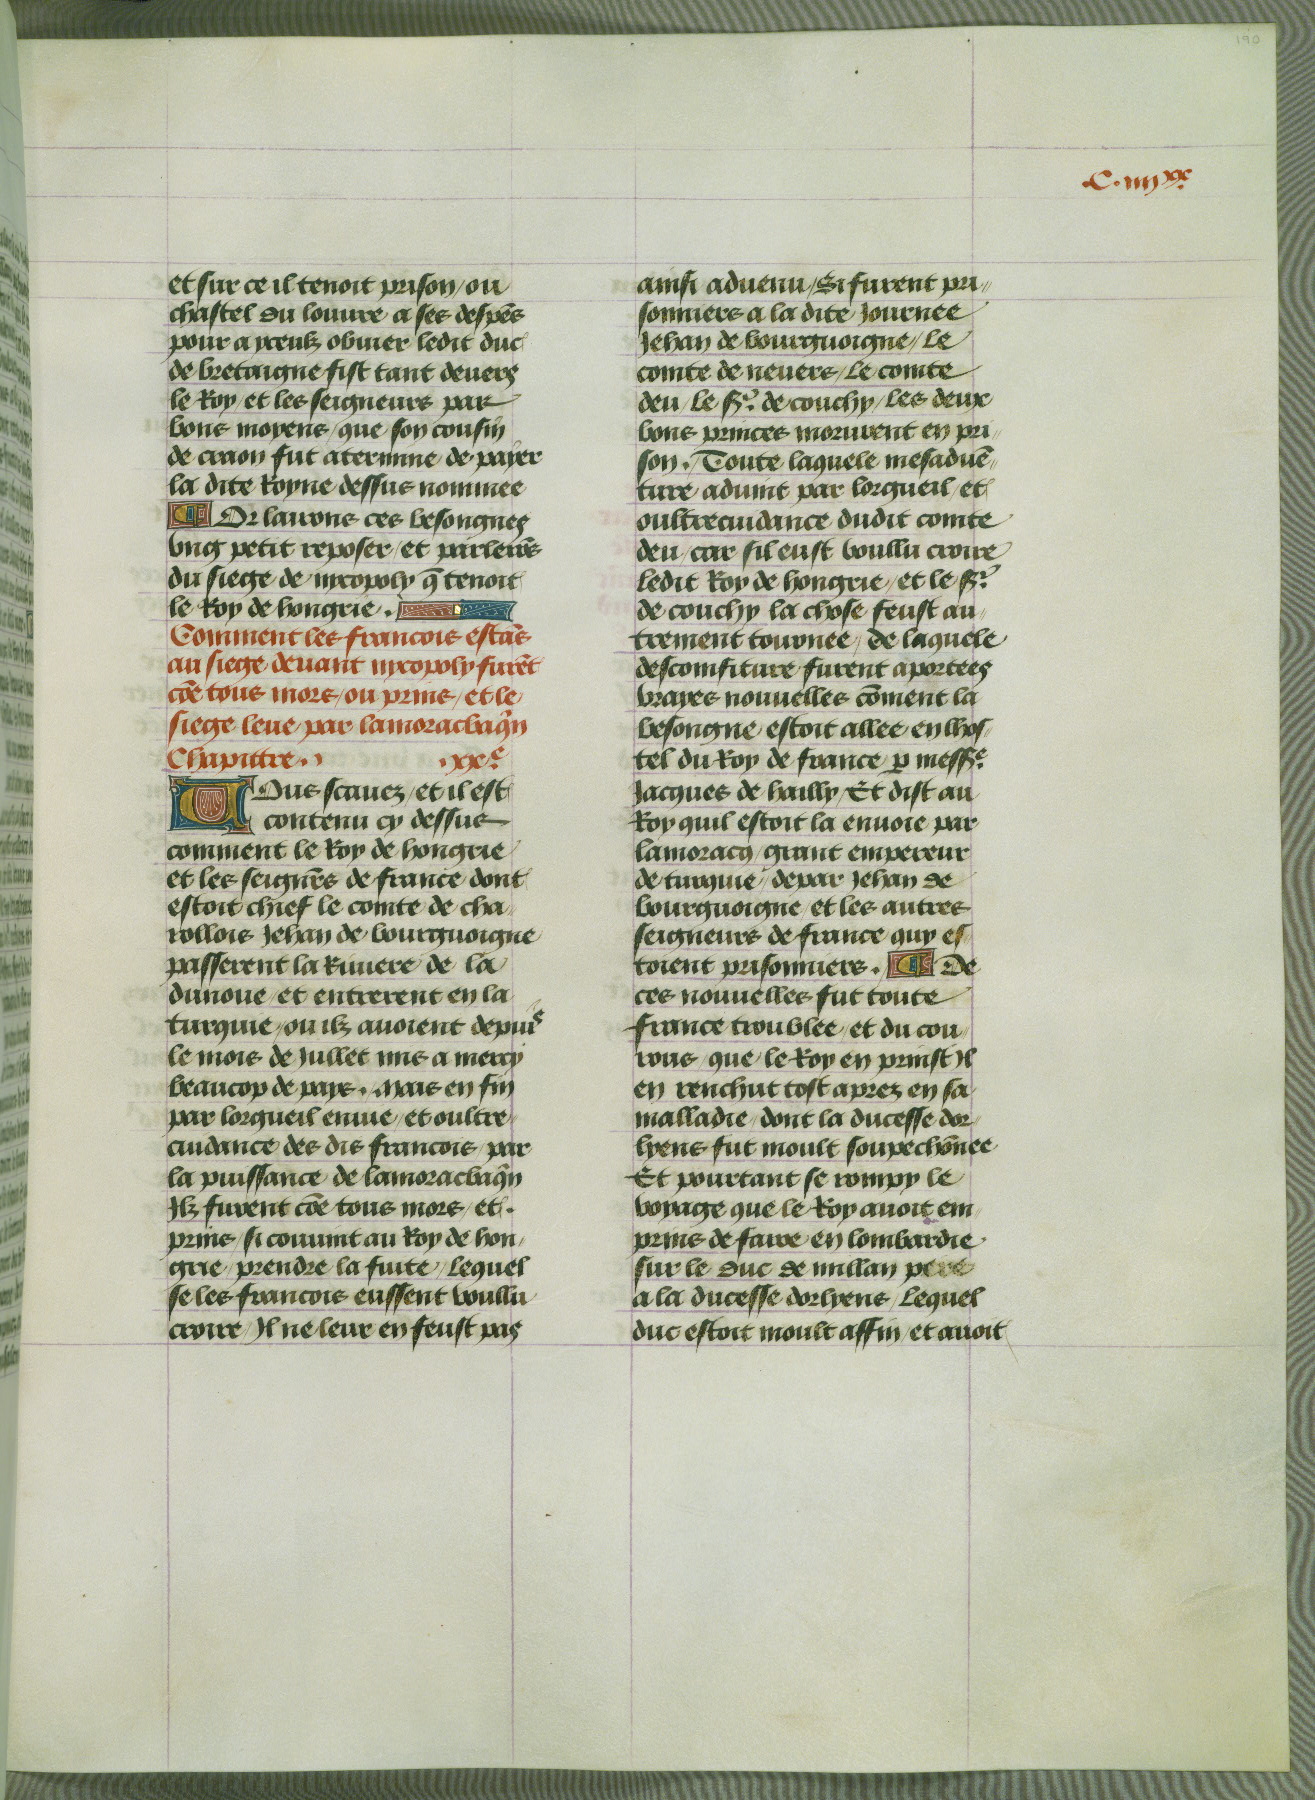 190
.C. iiijxx x.
et sur ce il tenoit prison / ou
chastel du louure a ses despēs
pour a yceulz obuier ledit duc
de bretaigne fist tant deuers
le Roy et les seigneurs par
bons moyens / que son cousin
de craon fut atermine de paÿer
la dite Royne dessus nommee
Or lairons ces besongnes
vng petit reposer / et parlerōs
du siege de nycopoly q̄ tenoit
le Roy de hongrie .
Comment les francois estās
au siege deuant nycopoly furēt
cōe tous mors / ou prins / et le
siege leue par lamoracbaq̄n
Chapittre . xxe.
Vous scauez / et il est
contenu cy dessus
comment le Roy de hongrie
et les seignēs de france dont
estoit chief le comte de cha
rollois Jehan de bourguoigne
passerent la Riuiere de la
dunoue / et entrerent en la
turquie / ou ilz auoient depuis
le mois de Jullet mis a mercy
beaucop de pays . Mais en fin
par lorgueil enuie / et oultre
cuidance des dis francois / par
la puissance de lamoracbaq̄n
Ilz furent cōe tous mors / et .
prins / si conuint au Roy de hon
grie / prendre la fuite / Lequel
se les francois eussent voullu
croire / Il ne leur en feust pas
ainsi aduenu / Si furent pri
sonniers a la dite Journee
Jehan de bourguoigne / Le
comte de neuers / Le comte
deu / Le Sr. de couchy / Les deux
bons princes morurent en pri
son . Toute laquele mesaduē
ture aduint par lorgueil / et
oultrecuidance dudit comte
deu / car sil eust voullu croire
ledit Roy de hongrie / et le Sr.
de couchy la chose feust au
trement tournee / de laquele
descomfiture furent aportees
vrayes nouuelles cōment la
besongne estoit allee en lhos
tel du Roy de france p̄ messe.
Jacques de hailly / Et dist au
Roy quil estoit la enuoie par
lamoracq / grant empereur
de turquie / depar Jehan de
bourguoigne / et les autres
seigneurs de france quy es
toient prisonniers . De
ces nouuelles fut toute
france troublee / et du cou
rous / que le Roy en prinst Il
en renchut tost aprez en sa
malladie / dont la ducesse dor
lyens fut moult soupechōnee
Et pourtant se rompy le
voyage que le Roy auoit em
prins de faire en lombardie
sur le duc de millan pere
a la ducesse dorlyens / Lequel
duc estoit moult affin / et auoit